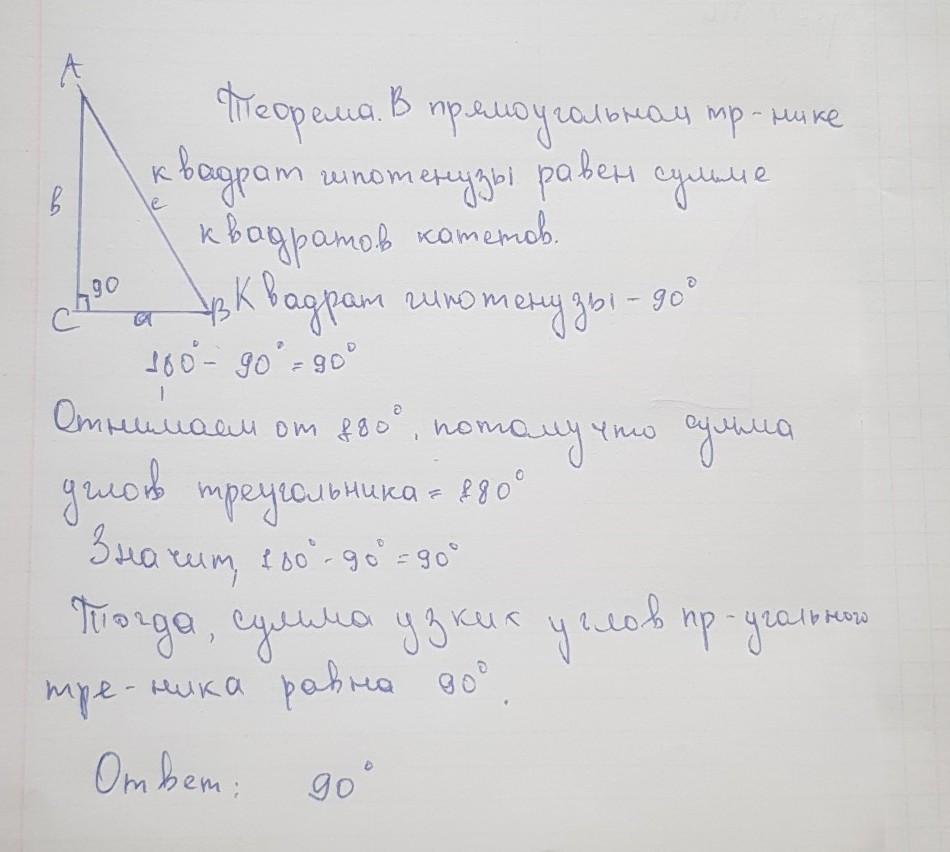 A
Теорема. В прямоугольном тр-нике
квадрат гипотенузы равен сумме
в
c
квадратов катетов.
90
C
a
B
Квадрат гипотенузы - 90°
180° - 90° = 90°
Отнимаем от 180°, потому что сумма
углов треугольника = 180°
Значит, 180° - 90° = 90°
Тогда, сумма узких углов пр-угольного
тре-ника равна 90°.
Ответ: 90°